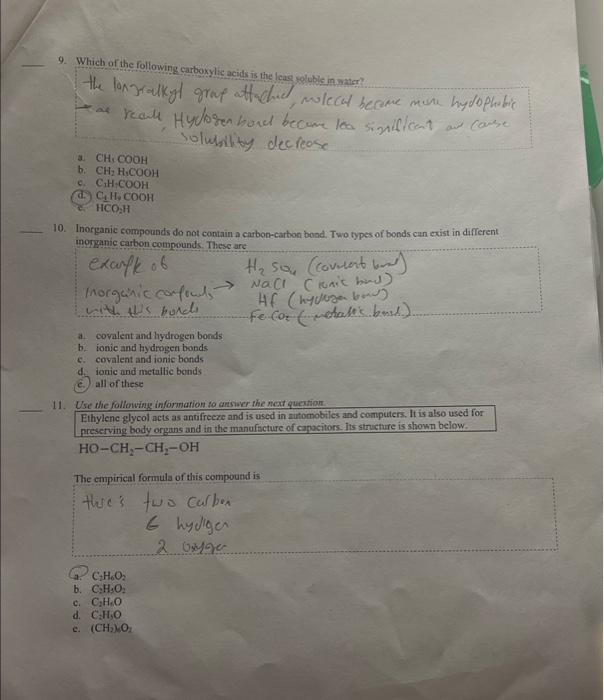 9. Which of the following carboxylic acids is the least soluble in water?
the long alkyl group attached, molecul become more hydophobic
as result, Hydogen bond become less significant and cause
solubility decrease
a. CH₃ COOH
b. CH₂ H₅COOH
c. C₃H₇COOH
d. C₄ H₉ COOH
e. HCO₂H
10. Inorganic compounds do not contain a carbon-carbon bond. Two types of bonds can exist in different
inorganic carbon compounds. These are
example of H₂ SO₄ (covalent bond)
→ NaCl (ionic bond)
inorganic HF (hydrogen bond)
with this bonds Fe (metallic bond)
a. covalent and hydrogen bonds
b. ionic and hydrogen bonds
c. covalent and ionic bonds
d. ionic and metallic bonds
e. all of these
11. Use the following information to answer the next question.
Ethylene glycol acts as antifreeze and is used in automobiles and computers. It is also used for
preserving body organs and in the manufacture of capacitors. Its structure is shown below.
HO–CH₂–CH₂–OH
The empirical formula of this compound is
two carbon
6 hydrgen
2 oxygen
a. C₂H₆O₂
b. C₂H₅O₂
c. C₂H₆O
d. C₂H₅O